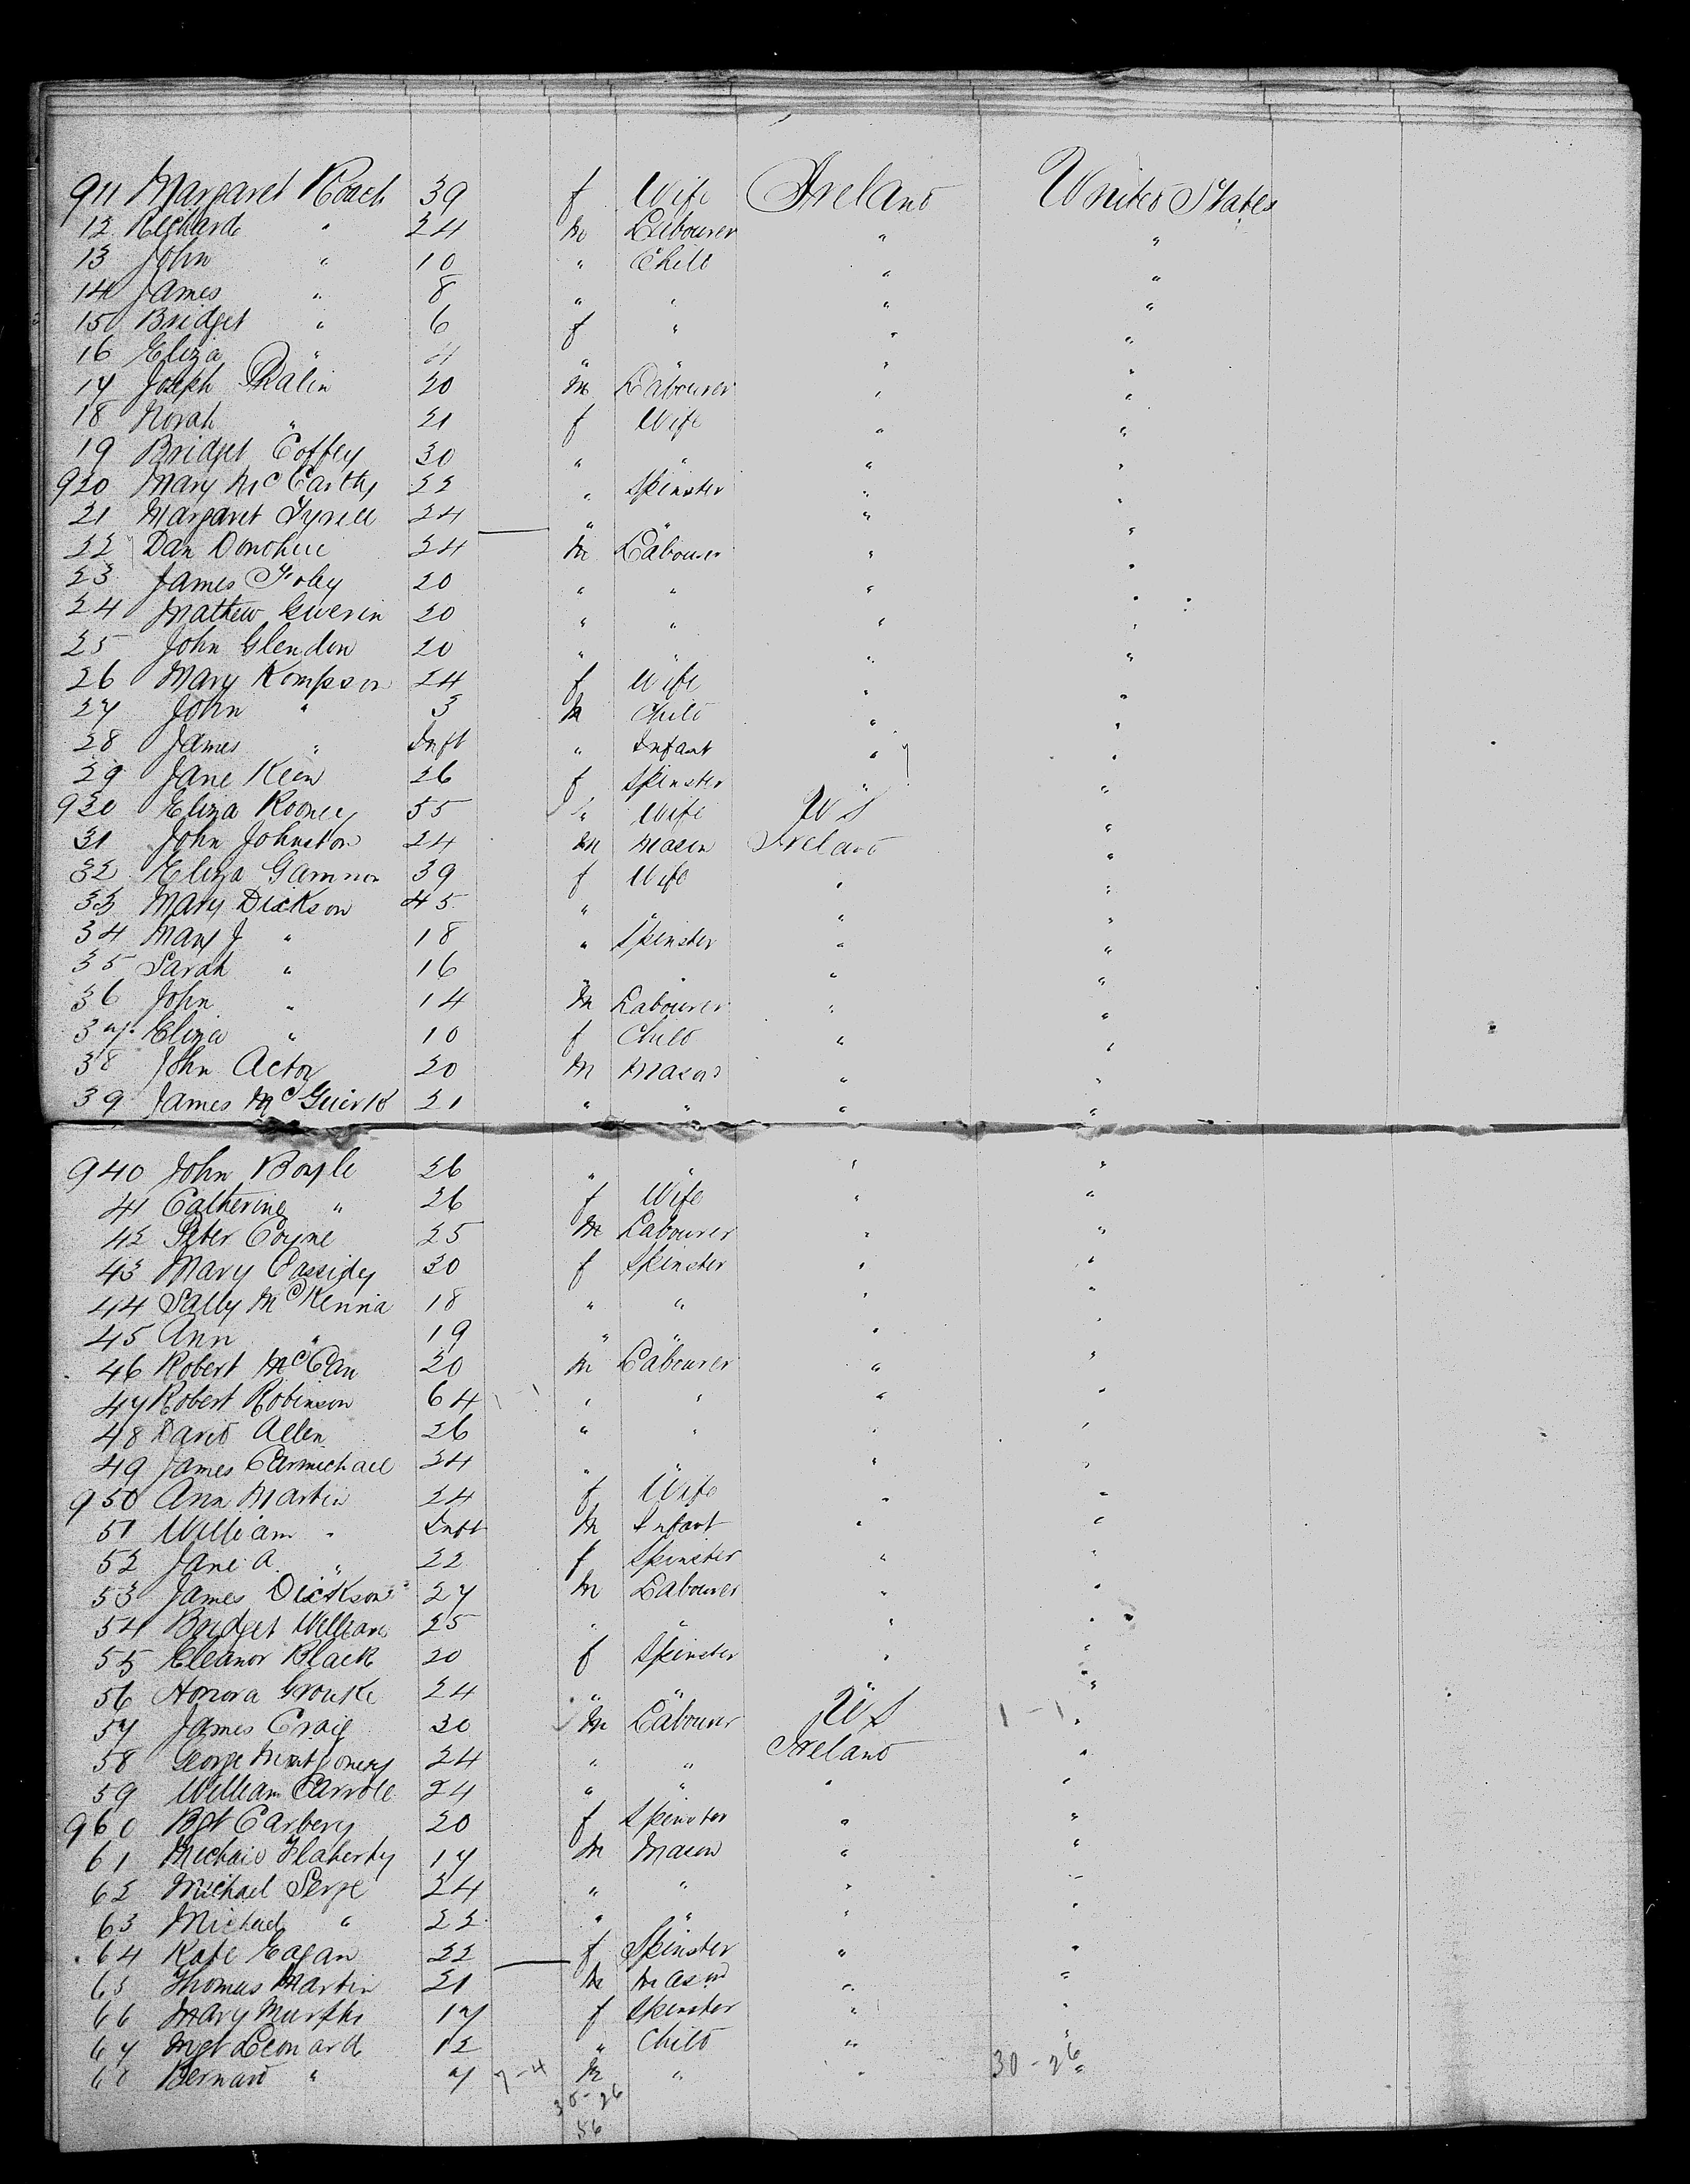 911 Margaret Roach 39 f Wife Ireland United States
12 Richard " 24 m Labourer " "
13 John " 10 " Child " "
14 James " 8 " " " "
15 Bridget " 6 f " " "
16 Eliza " 4 " " " "
17 Joseph Phalin 20 m Labourer " "
18 Norah " 21 f Wife " "
19 Bridget Coffey 30 " " " "
920 Mary McCarthy 22 " Spinster " "
21 Margaret Tyrell 24 " " " "
22 Dan Donohue 24 m Labourer " "
23 James Foley 20 " " " "
24 Mathew Guerin 20 " " " "
25 John Glendon 20 " " " "
26 Mary Kompson 24 f Wife " "
27 John " 3 m Child " "
28 James " Inft " Infant " "
29 Jane Keen 26 f Spinster " "
930 Eliza Rooney 55 " Wife US "
31 John Johnston 24 m Mason Ireland "
32 Eliza Gammon 39 f Wife " "
33 Mary Dickson 45 " " " "
34 Mary J " 18 " Spinster " "
35 Sarah " 16 " " " "
36 John " 14 m Labourer " "
37 Eliza " 10 f Child " "
38 John Acton 20 m Mason " "
39 James McGuirk 21 " " " "
940 John Boyle 26 " " " "
41 Catherine " 26 f Wife " "
42 Peter Coyne 25 m Labourer " "
43 Mary Cassidy 30 f Spinster " "
44 Sally McKenna 18 " " " "
45 Ann " 19 " " " "
46 Robert McCan 20 m Labourer " "
47 Robert Robinson 64 " " " "
48 David Allen 26 " " " "
49 James Carmichael 24 " " " "
950 Ann Martin 24 f Wife " "
51 William " Inft m Infant " "
52 Jane A. " 22 f Spinster " "
53 James Dickson 27 m Labourer " "
54 Bridget William 25 " " " "
55 Eleanor Black 20 f Spinster " "
56 Honora Grouke 24 " " " "
57 James Craig 30 m Labourer US 1 - 1 "
58 George Montgomery 24 " " Ireland "
59 William Carroll 24 " " " "
960 Bgt Carbery 20 f Spinster " "
61 Michael Flaherty 17 m Mason " "
62 Michael Serge 24 " " " "
63 Michael " 22 " " " "
64 Kate Eagan 22 f Spinster " "
65 Thomas Martin 21 m Mason " "
66 Mary Murphy 17 f Spinster " "
67 Mgt Leonard 12 " Child " "
68 Bernard " 7 7-4 m " " 30-26 "
30-26
56